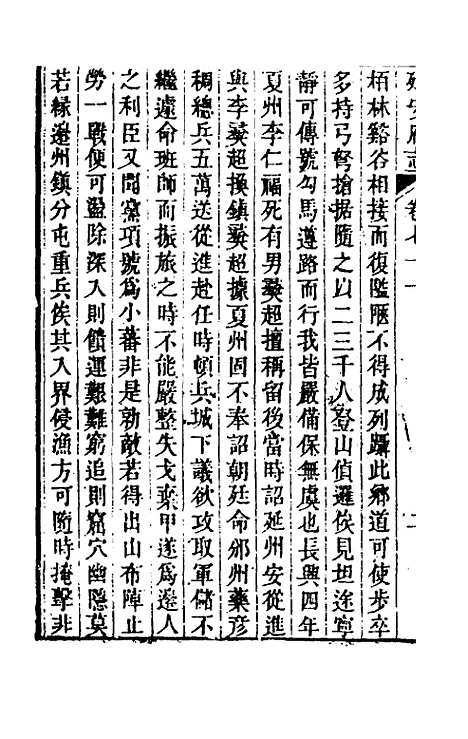 延安府志 卷七十一
栢林谿谷相接而復隘陿不得成列躡此鄉道可使步卒
多持弓弩搶据隨之以二三千人登山偵邏俟見坦途寧
靜可傳號勾馬遵路而行我皆嚴備保無虞也長興四年
夏州李仁福死有男彝超擅稱留後當時詔延州安從進
與李彝超換鎮彝超據夏州固不奉詔朝廷命邠州藥彦
稠總兵五萬送從進赴任時頓兵城下議欲攻取軍儲不
繼遽命班師而振旅之時不能嚴整失戈棄甲遂爲邊人
之利臣又聞黨項號爲小蕃非是勍敵若得出山布陣止
勞一戰便可盪除深入則饋運艱難窮追則窟穴幽隱莫
若緣邊州鎮分屯重兵俟其入界侵漁方可隨時掩擊非